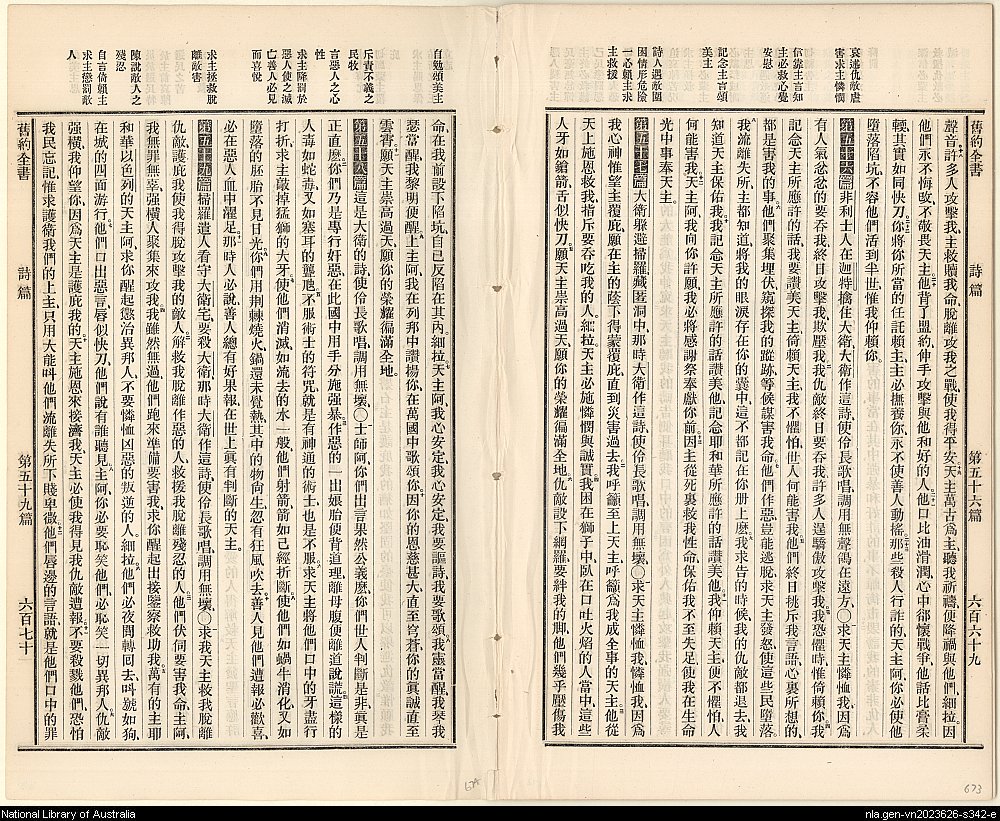 哀述仇敵虐
害求主憐憫
信靠主言知
主必救心覺
安慰
記念主言頌
美主
詩人遇敵圍
困情形危險
一心賴主求
主救援
舊約全書 詩篇 第五十六篇 六百六十九
聲音許多人攻擊我主救贖我命脫離攻我之戰使我得平安天主萬古爲主聽我祈禱便降禍與他們細拉因
他們永不悔改不敬畏天主他背了盟約伸手攻擊與他和好的人他口比油滑潤心中卻懷戰爭他話比膏柔
輭其實如同快刀你將你所當的任託賴主主必撫養你永不使善人動搖那些殺人行詐的天主阿你必使他
墮落陷坑不容他們活到半世惟我仰賴你
第五十六篇 非利士人在迦特擒住大衛大衛作這詩使伶長歌唱調用無聲鴿在遠方〇求天主憐恤我因爲
有人氣忿忿的要吞我終日攻擊我欺壓我我仇敵終日要吞我許多人逞驕傲攻擊我我恐懼時惟倚賴你我
記念天主所應許的話我要讚美天主倚賴天主我不懼怕世人何能害我他們終日挑斥我言語心裏所想的
都是害我的事他們聚集埋伏窺探我的蹤跡等候謀害我命他們作惡豈能逃脫求天主發怒使這些民墮落
我流離失所主都知道將我的眼淚存在你的囊中這不都記在你册上麽我求告的時候我的仇敵都退去我
知道天主保佑我我記念天主所應許的話讚美他記念耶和華所應許的話讚美他我仰賴天主便不懼怕人
何能害我天主阿我向你許願我必將感謝祭奉獻你前因主從死裏救我性命保佑我不至失足使我在生命
光中事奉天主
第五十七篇 大衛躲避掃羅藏匿洞中那時大衛作這詩使伶長歌唱調用無壞〇求天主憐恤我憐恤我因爲
我心神惟望主覆庇願在主的蔭下得蒙覆庇直到災害過去我呼籲至上天主呼籲爲我成全事的天主他從
天上施恩救我指斥要吞吃我的人細拉天主必施憐憫與誠實我困在獅子中臥在口吐火焰的人當中這些
人牙如鎗箭舌似快刀願天主崇高過天願你的榮耀徧滿全地仇敵設下網羅要絆我的脚他們幾乎壓傷我
673
自勉頌美主
斥責不義之
民牧
言惡人之心
性
求主降罰於
惡人使之滅
亡善人必見
而喜悅
求主拯救脫
離敵害
陳說敵人之
殘忍
自言倚賴主
求主懲罰敵
人
命在我前設下陷坑自已反陷在其內細拉天主阿我心安定我心安定我要謳詩我要歌頌我靈當醒我琴我
瑟當醒我黎明便醒上主阿我在列邦中讚揚你在萬國中歌頌你因你的恩慈甚大直至穹蒼你的眞誠直至
雲霄願天主崇高過天願你的榮耀徧滿全地
第五十八篇 這是大衛的詩使伶長歌唱調用無壞〇士師阿你們出言果然公義麽你們世人判斷是非眞是
正直麽你們乃是專行奸惡在此國中用手分施强暴作惡的一出娘胎便背道理離母腹便離道說謊這樣的
人毒如蛇毒又如塞耳的聾虺不服術士的符咒就是有神通的術士也是不服求天主將他們口中的牙盡行
打折求主敲掉猛獅的大牙使他們消滅如流去的水一般他們射箭箭如已經折斷使他們如蝸牛消化又如
墮落的胚胎不見日光你們用荆棘燒火鍋還未覺熱其中的物尙生忽有狂風吹去善人見他們遭報必歡喜
必在惡人血中濯足那時人必說善人總有好果報在世上眞有判斷的天主
第五十九篇 掃羅遣人看守大衛宅要殺大衛那時大衛作這詩使伶長歌唱調用無壞〇求我天主救我脫離
仇敵護庇我使我得脫攻擊我的敵人解救我脫離作惡的人救援我脫離殘忍的人他們伏伺要害我命主阿
我無罪無辜强橫人聚集來攻我我雖然無過他們跑來準備要害我求你醒起出接鑒察救助我萬有的主耶
和華以色列的天主阿求你醒起懲治異邦人不要憐恤凶惡的叛逆的人細拉他們必夜間轉回去叫號如狗
在城的四面游行他們口出惡言唇似快刀他們說有誰聽見主阿你必要恥笑他們必恥笑一切異邦人仇敵
强橫我仰望你因爲天主是護庇我的天主施恩來接濟我天主必使我得見我仇敵遭報不要殺戮他們恐怕
我民忘記惟求護衛我們的上主只用大能叫他們流離失所下賤卑微他們唇邊的言語就是他們口中的罪
舊約全書 詩篇 第五十九篇 六百七十
674
National Library of Australia
nla.gen-vn2023626-s342-e